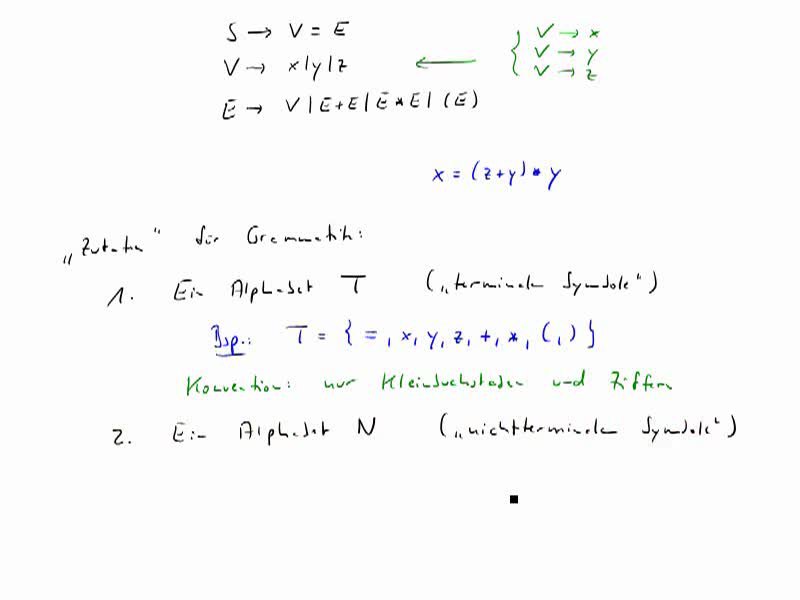 S → V = E
V → x | y | z
E → V | E + E | E * E | (E)
{ V → x
V → y
V → z
x = (z + y) * y
„Zutaten“ für Grammatik:
1. Ein Alphabet T („terminale Symbole“)
Bsp.: T = { =, x, y, z, +, *, (, ) }
Konvention: nur Kleinbuchstaben und Ziffern
2. Ein Alphabet N („nichtterminale Symbole“)